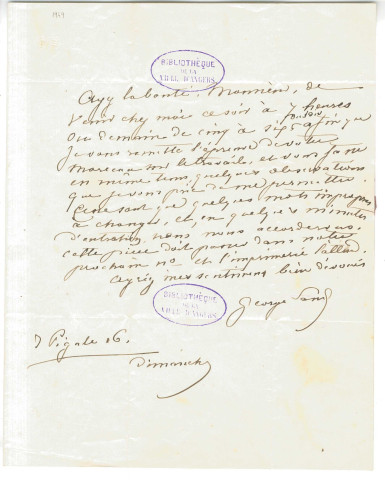 1949
BIBLIOTHÈQUE
DE LA
VILLE D'ANGERS
Ayez la bonté, Monsieur, de
venir chez moi ce soir à 7 heures
ou demain de cinq à sept afin que
je vous remette l'épreuve de votre
morceau sur le travail, et vous fasse
en même tems quelques observations
que je vous prie de me permettre.
Ce ne sont que quelques mots impropres
à changer, et en quelques minutes
d'entretien nous nous accorderons.
cette pièce doit passer dans notre
prochain no et l'imprimerie
Agréez mes sentimens bien dévoués
BIBLIOTHÈQUE
DE LA
VILLE D'ANGERS
George Sand
Pigale 16.
Dimanche